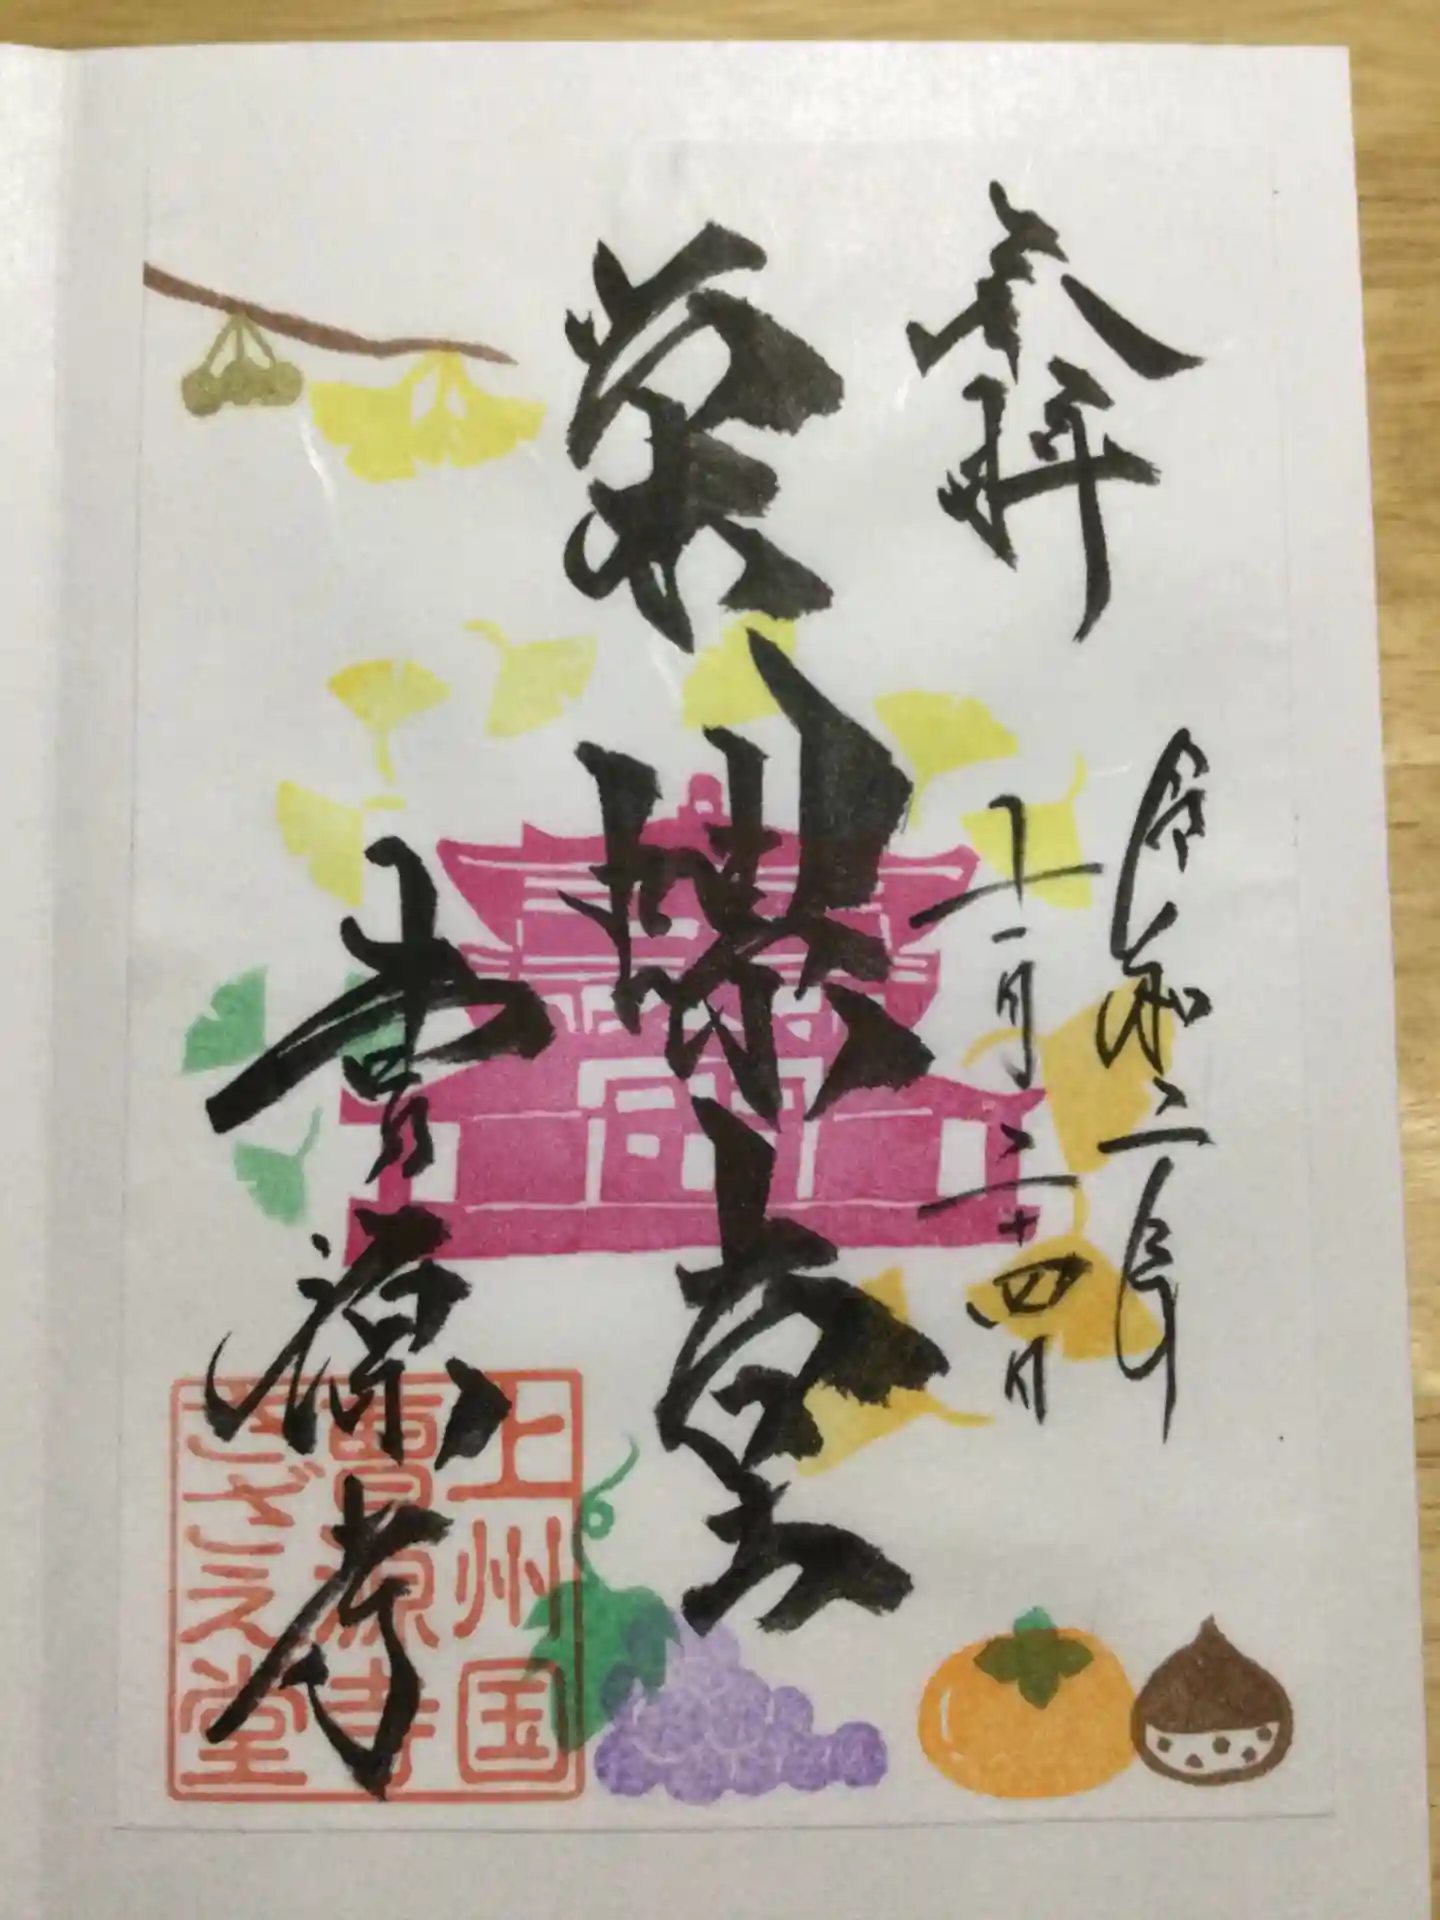 奉拝
令和二年
十一月二十四日
栄螺堂
曹源寺
上州国
曹源寺
さざえ堂